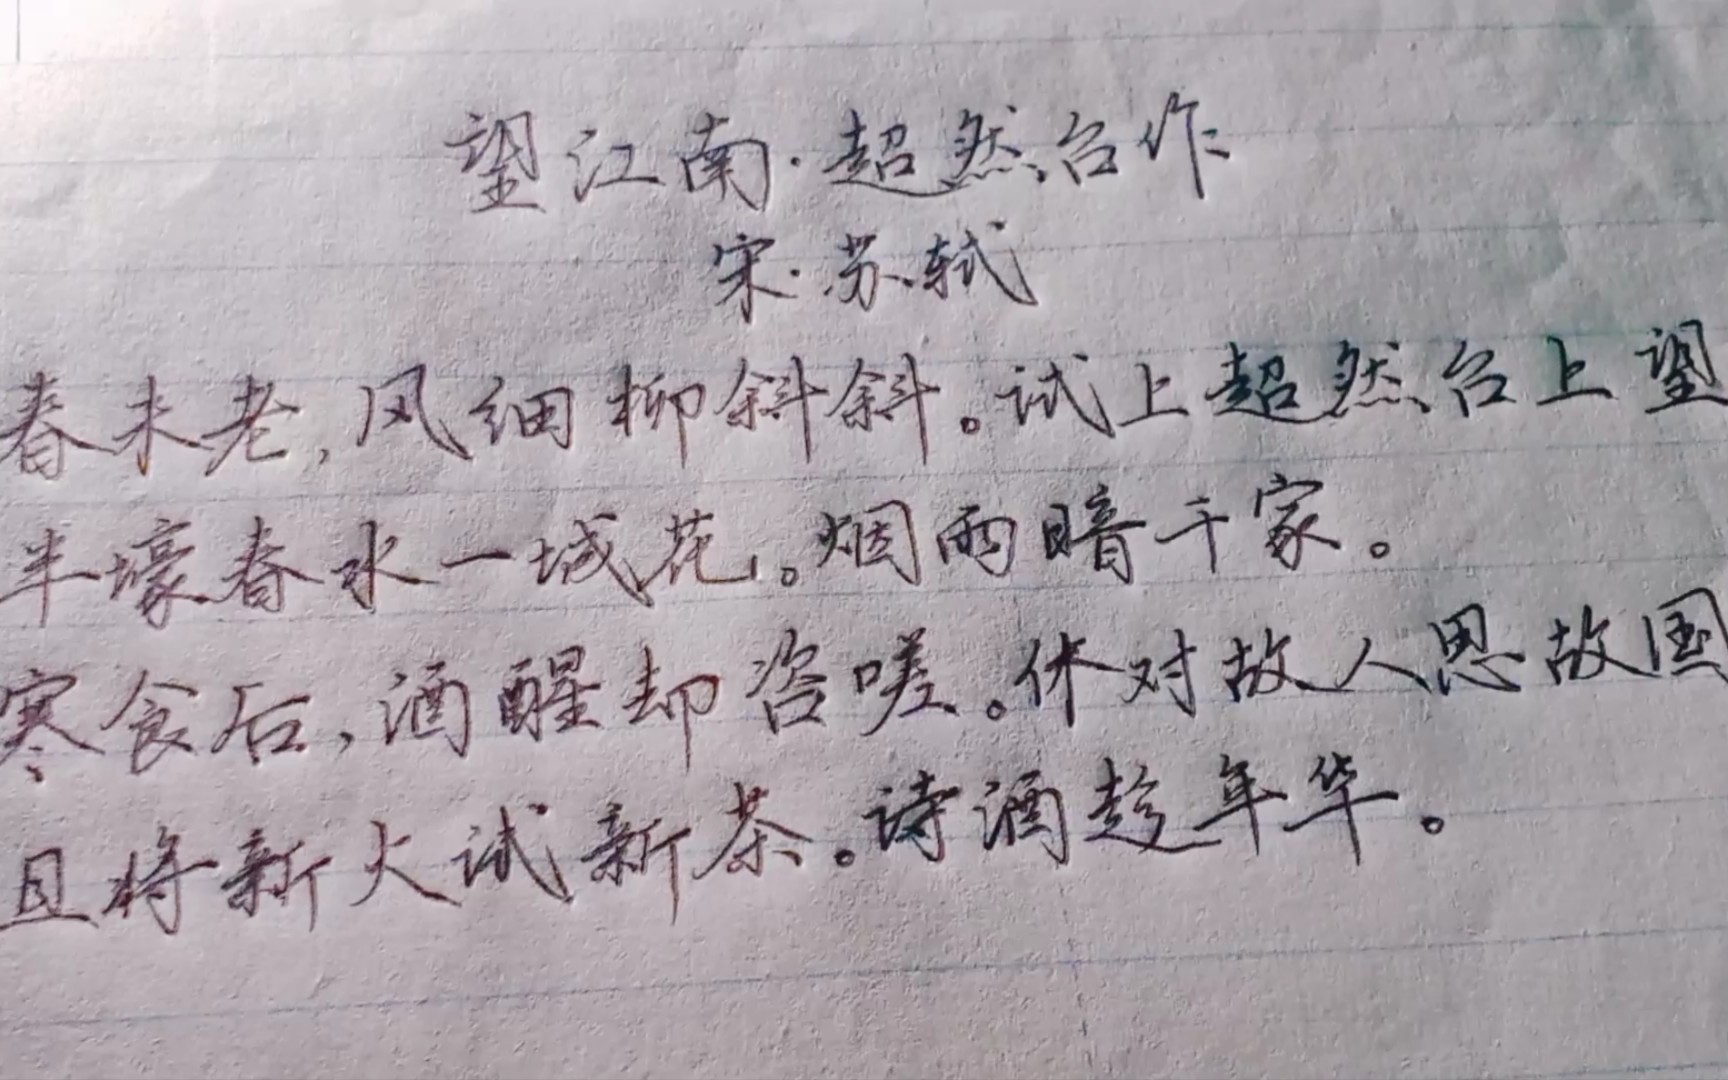 望江南·超然台作
宋·苏轼
春未老,风细柳斜斜。试上超然台上望
半壕春水一城花。烟雨暗千家。
寒食后,酒醒却咨嗟。休对故人思故国
且将新火试新茶。诗酒趁年华。